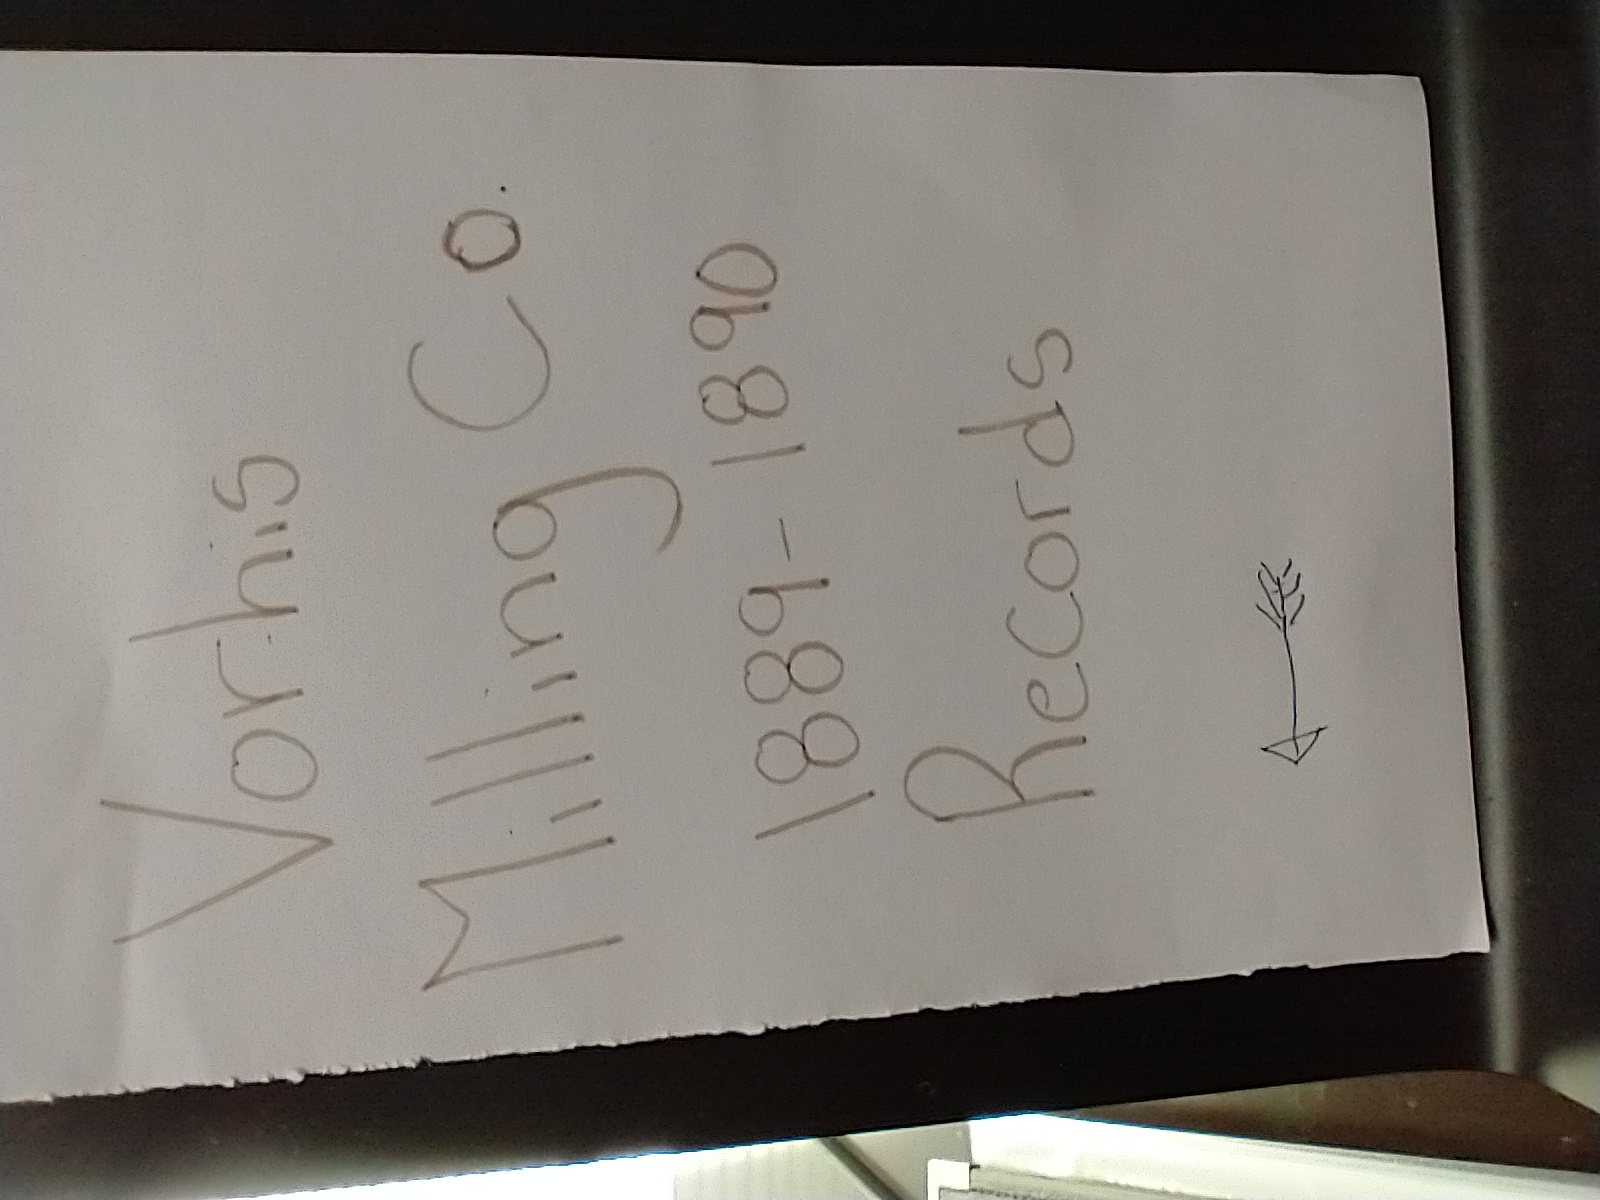 Vorhis
Milling Co.
1889-1890
Records